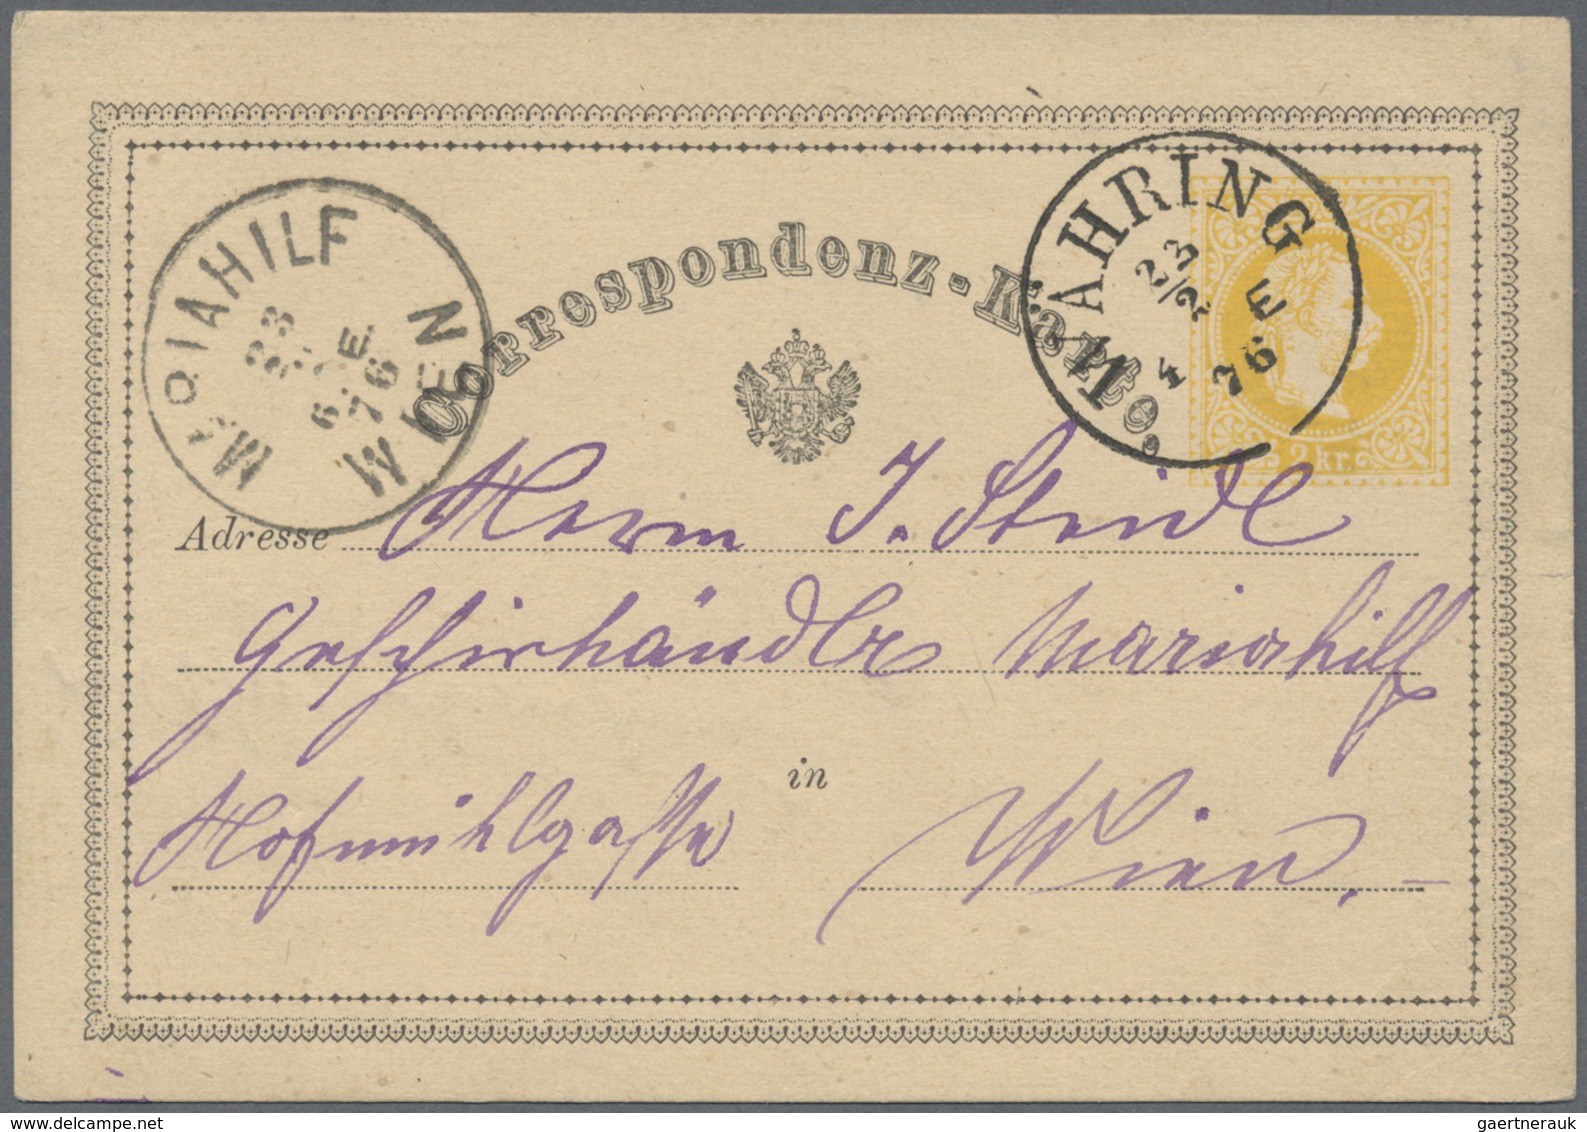 Correspondenz-Karte.
MARIAHILF
WIEN
23
2
6.E
76
WÄHRING
23/2
4 E
76
2 kr.
Adresse Herrn J. Steidl
Geschirrhändler Mariahilf
Hofmühlgasse in Wien.
gaertnerauk
delcampe.net